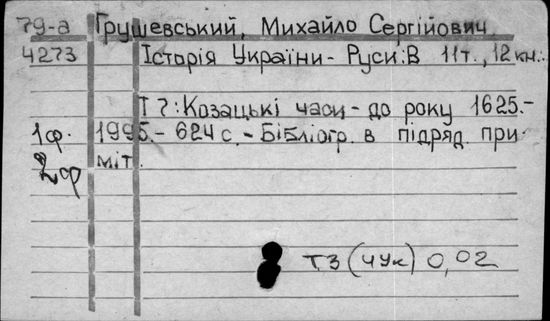 79-а Грушевський, Михайло Сергійович
4273 Історія України-Руси: В 11т., 12 кн.:
Т 7: Козацькі часи - до року 1625.-
1ф. 1995.- 624 с. - Бібліогр. в підряд. при-
2ф міт.
ТЗ (ЧУк) 0,02